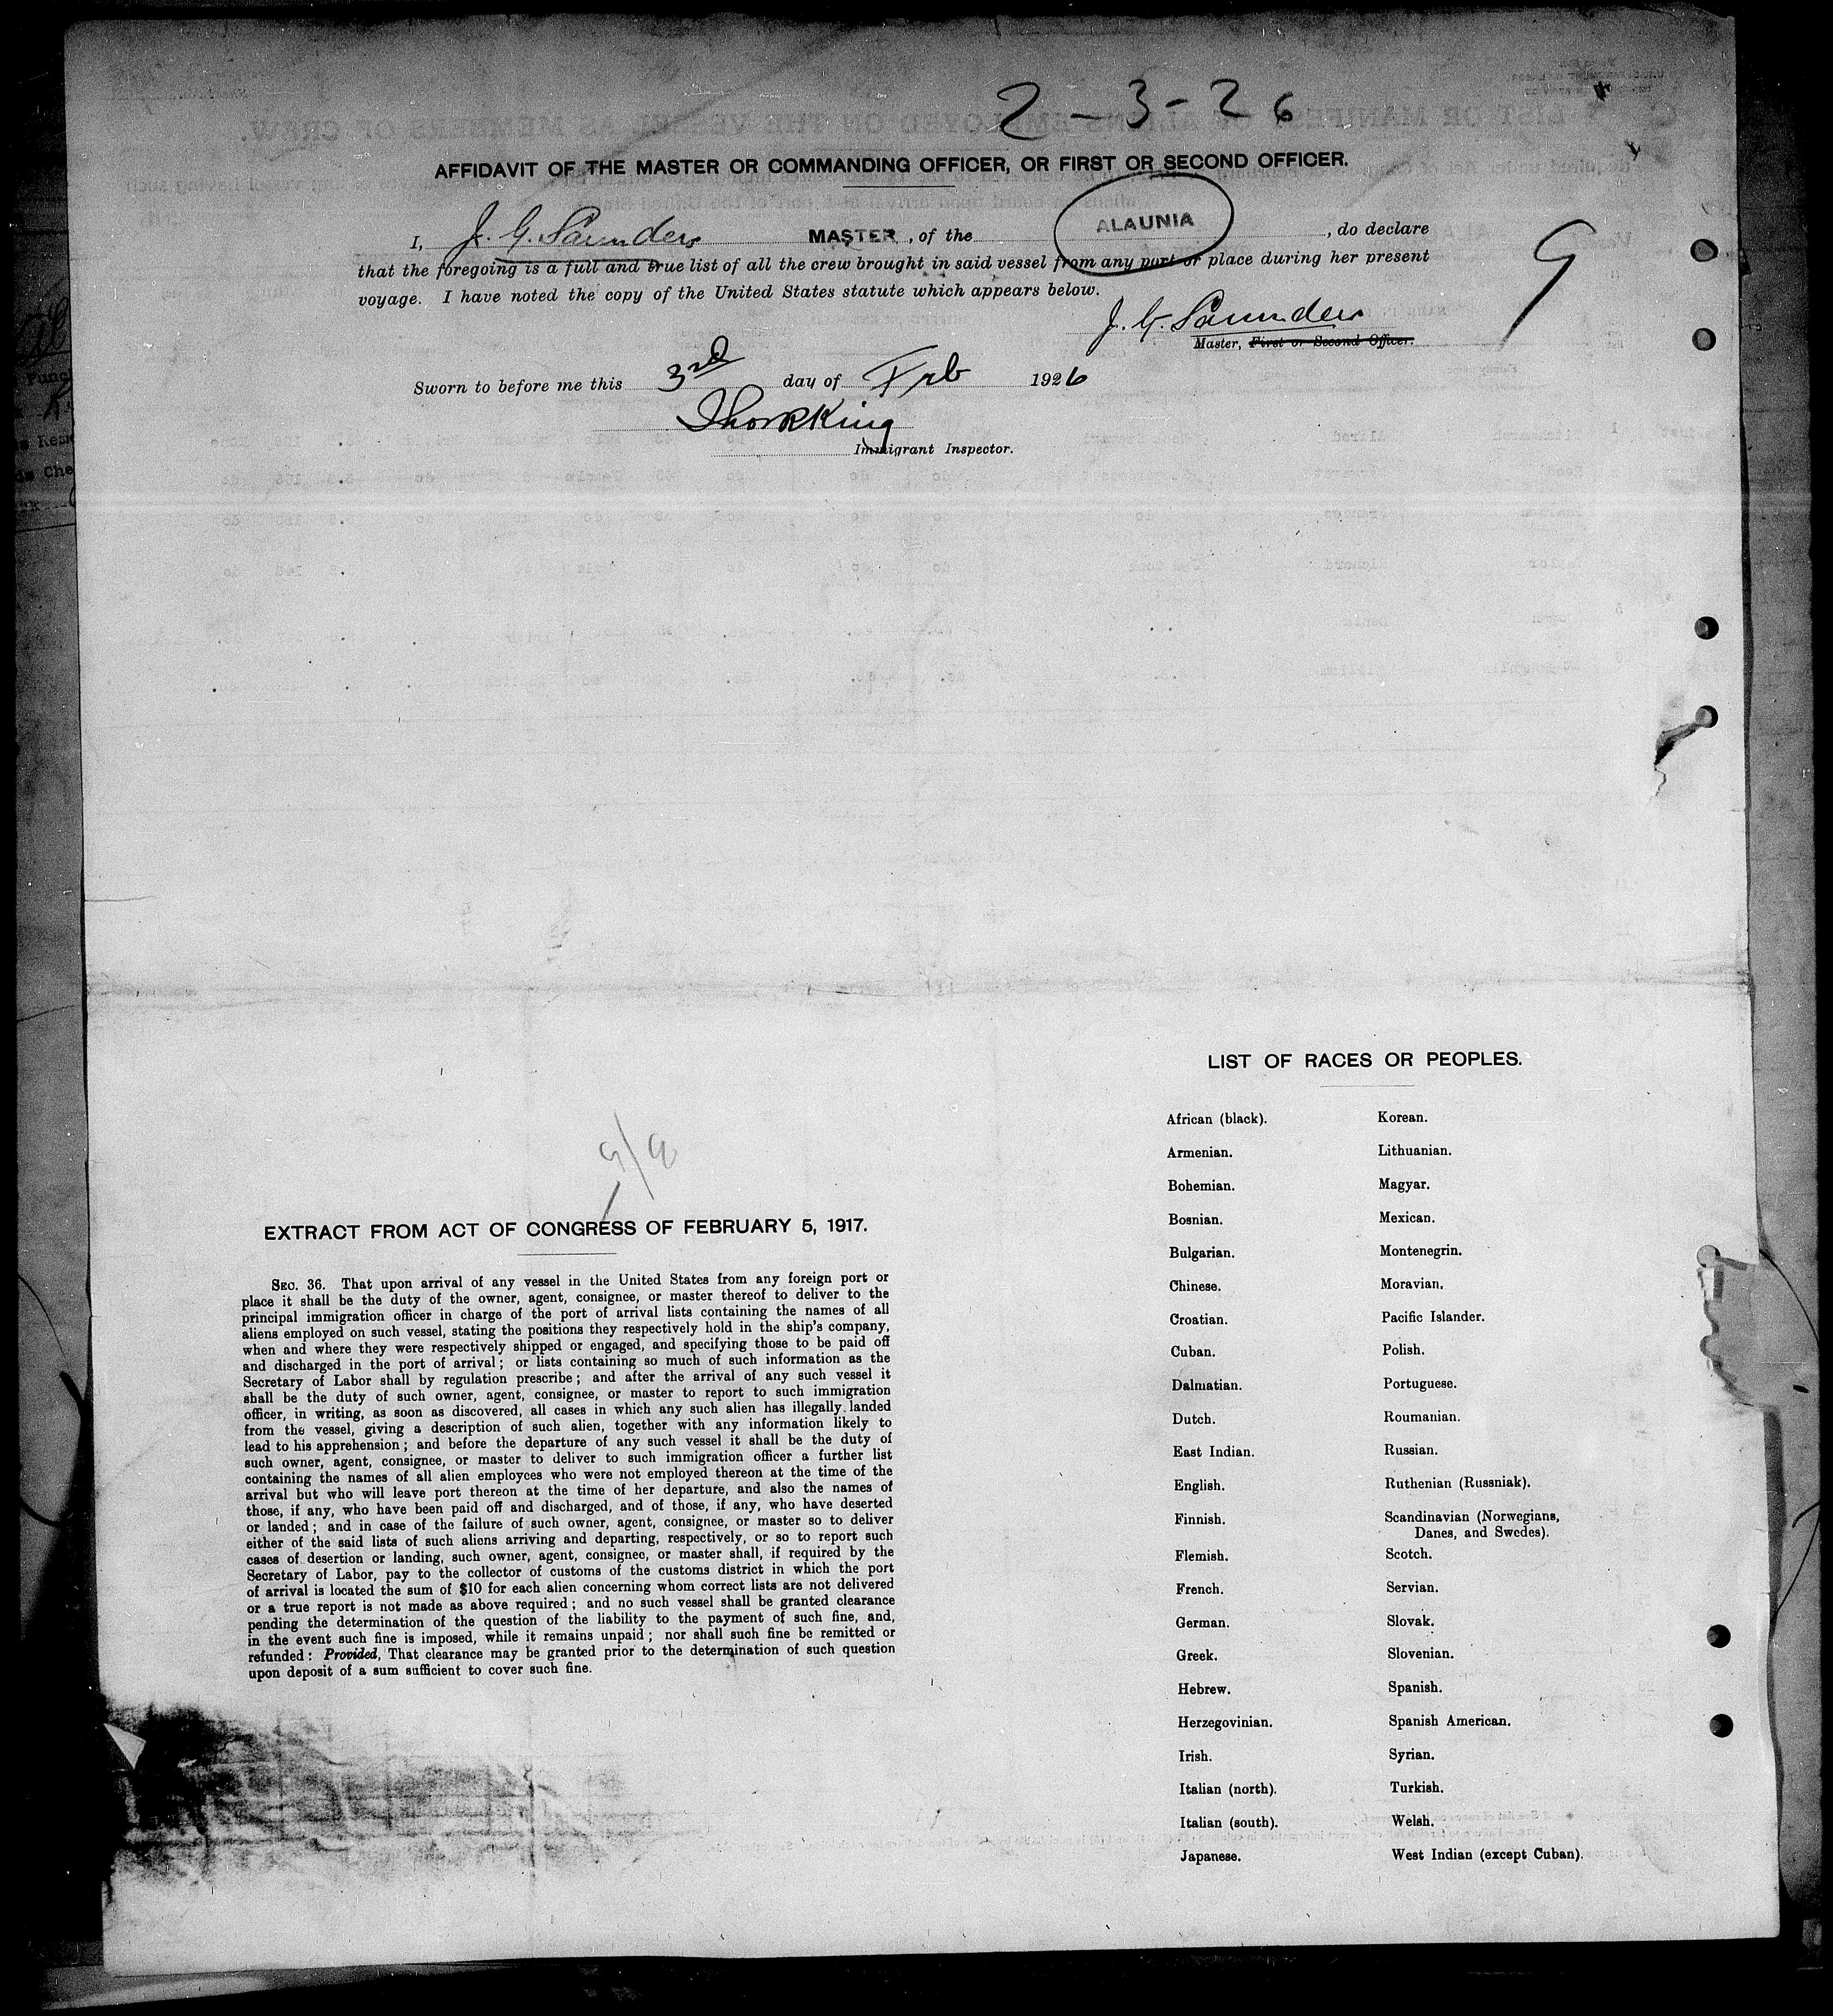 2-3-26
AFFIDAVIT OF THE MASTER OR COMMANDING OFFICER, OR FIRST OR SECOND OFFICER.
I, J. G. Saunders MASTER, of the ALAUNIA, do declare
that the foregoing is a full and true list of all the crew brought in said vessel from any port or place during her present
voyage. I have noted the copy of the United States statute which appears below.
J. G. Saunders
Master, First or Second Officer.
9
Sworn to before me this 3rd day of Feb 1926
King
Immigrant Inspector.
LIST OF RACES OR PEOPLES.
African (black). Korean.
Armenian. Lithuanian.
Bohemian. Magyar.
Bosnian. Mexican.
Bulgarian. Montenegrin.
Chinese. Moravian.
Croatian. Pacific Islander.
Cuban. Polish.
Dalmatian. Portuguese.
Dutch. Roumanian.
East Indian. Russian.
English. Ruthenian (Russniak).
Finnish. Scandinavian (Norwegians,
Danes, and Swedes).
Flemish. Scotch.
French. Servian.
German. Slovak.
Greek. Slovenian.
Hebrew. Spanish.
Herzegovinian. Spanish American.
Irish. Syrian.
Italian (north). Turkish.
Italian (south). Welsh.
Japanese. West Indian (except Cuban).
EXTRACT FROM ACT OF CONGRESS OF FEBRUARY 5, 1917.
SEC. 36. That upon arrival of any vessel in the United States from any foreign port or
place it shall be the duty of the owner, agent, consignee, or master thereof to deliver to the
principal immigration officer in charge of the port of arrival lists containing the names of all
aliens employed on such vessel, stating the positions they respectively hold in the ship's company,
when and where they were respectively shipped or engaged, and specifying those to be paid off
and discharged in the port of arrival; or lists containing so much of such information as the
Secretary of Labor shall by regulation prescribe; and after the arrival of any such vessel it
shall be the duty of such owner, agent, consignee, or master to report to such immigration
officer, in writing, as soon as discovered, all cases in which any such alien has illegally landed
from the vessel, giving a description of such alien, together with any information likely to
lead to his apprehension; and before the departure of any such vessel it shall be the duty of
such owner, agent, consignee, or master to deliver to such immigration officer a further list
containing the names of all alien employees who were not employed thereon at the time of the
arrival but who will leave port thereon at the time of her departure, and also the names of
those, if any, who have been paid off and discharged, and of those, if any, who have deserted
or landed; and in case of the failure of such owner, agent, consignee, or master so to deliver
either of the said lists of such aliens arriving and departing, respectively, or so to report such
cases of desertion or landing, such owner, agent, consignee, or master shall, if required by the
Secretary of Labor, pay to the collector of customs of the customs district in which the port
of arrival is located the sum of $10 for each alien concerning whom correct lists are not delivered
or a true report is not made as above required; and no such vessel shall be granted clearance
pending the determination of the question of the liability to the payment of such fine, and,
in the event such fine is imposed, while it remains unpaid; nor shall such fine be remitted or
refunded: Provided, That clearance may be granted prior to the determination of such question
upon deposit of a sum sufficient to cover such fine.